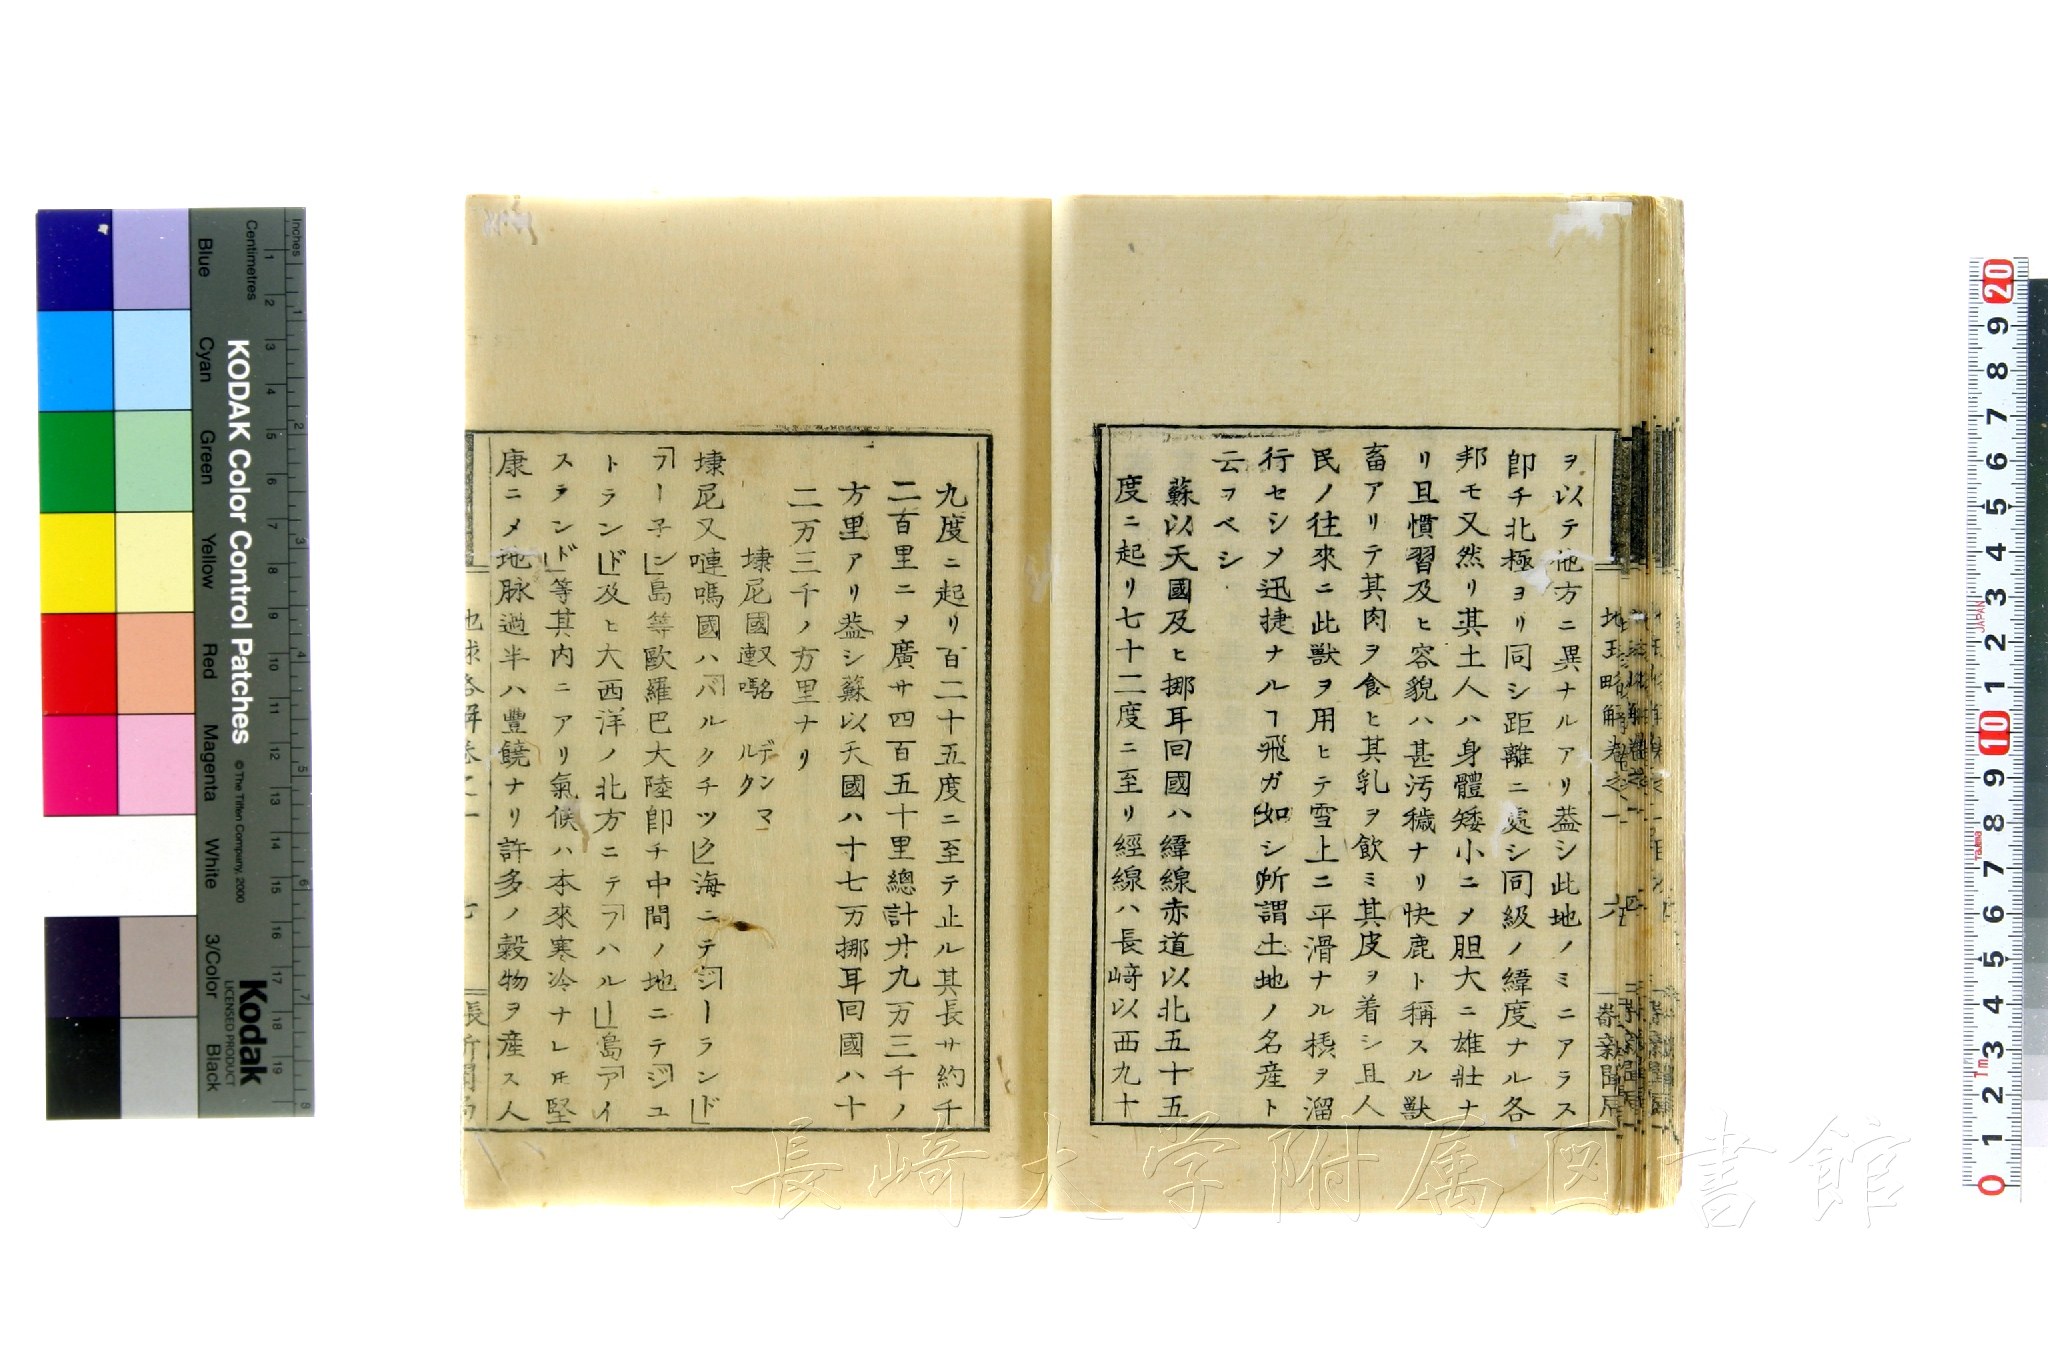 ヲ以テ他方ニ異ナルアリ葢シ此地ノミニアラス
卽チ北極ヨリ同シ距離ニ處シ同級ノ緯度ナル各
邦モ又然リ其土人ハ身體矮小ニメ胆大ニ雄壯ナ
リ且慣習及ヒ容貌ハ甚汚穢ナリ快鹿ト稱スル獸
畜アリテ其肉ヲ食ヒ其乳ヲ飲ミ其皮ヲ着シ且人
民ノ往來ニ此獸ヲ用ヒテ雪上ニ平滑ナル橇ヲ溜
行セシメ迅捷ナルヿ飛ガ如シ所謂土地ノ名産ト
云フベシ
蘇以天國及ヒ挪耳回國ハ緯線赤道以北五十五
度ニ起リ七十二度ニ至リ經線ハ長﨑以西九十
九度ニ起リ百二十五度ニ至テ止ル其長サ約千
二百里ニヲ廣サ四百五十里總計廾九万三千ノ
方里アリ葢シ蘇以天國ハ十七万挪耳回國ハ十
二万三千ノ方里ナリ
埭尼國 デンマルク
埭尼又嗹嗎國ハ「バルクチツク」海ニテ「シーランド」
「フー子ン」島等歐羅巴大陸卽チ中間ノ地ニテ「ジユ
トランド」及ヒ大西洋ノ北方ニテ「フハル」島「アイ
スランド」等其内ニアリ氣候ハ本來寒冷ナレ𪜈堅
康ニメ地脉過半ハ豐饒ナリ許多ノ穀物ヲ産ス人
KODAK Color Control Patches
© The Tiffen Company, 2000
Kodak
LICENSED PRODUCT
Inches
Centimetres
Blue
Cyan
Green
Yellow
Red
Magenta
White
3/Color
Black
1 2 3 4 5 6 7 8 9 10 11 12 13 14 15 16 17 18 19
20 9 8 7 6 5 4 3 2 1 10 9 8 7 6 5 4 3 2 1 0
JAPAN
Tajima
長崎大学附属図書館